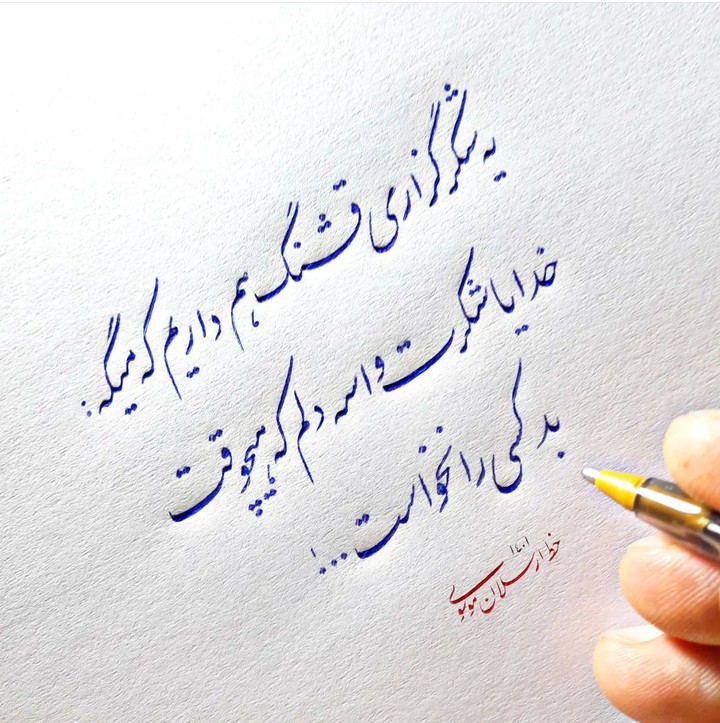 یه شکرگزاری قشنگ هم داریم که میگه:
خدایا شکرت واسه دلم که هیچوقت
بد کسی را نخواست...!
خط ارسلان موسوی